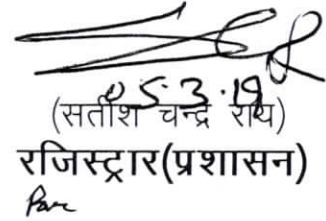 05.3.19
(सतीश चन्द्र राय)
रजिस्ट्रार(प्रशासन)